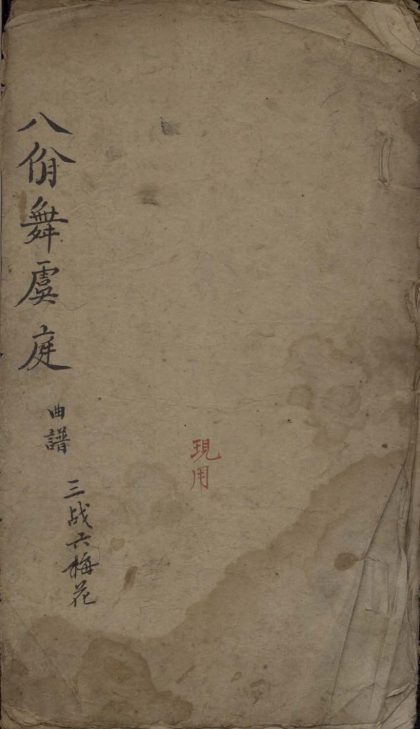 八佾舞虞庭
曲譜
三战六梅花
現用